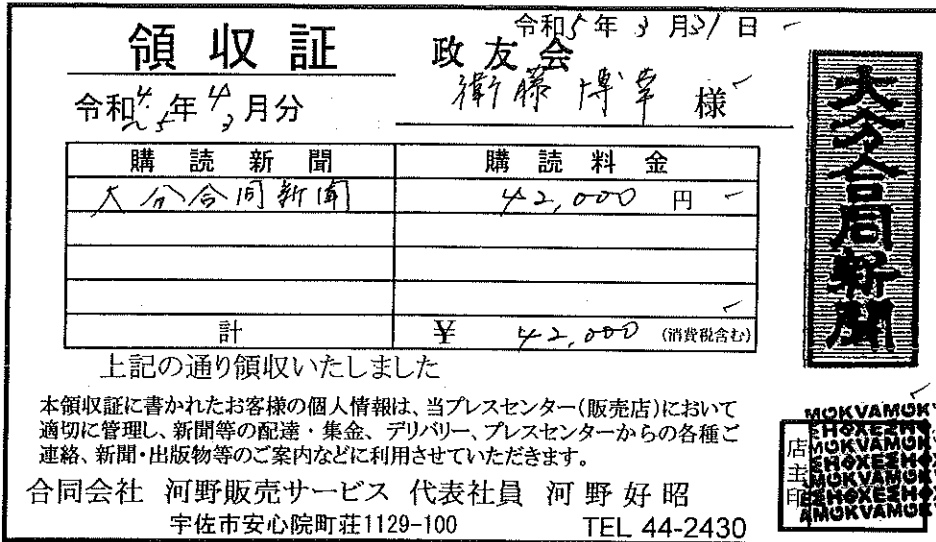 令和5年3月31日
領収証
政友会
衛藤博幸 様
令和4.年4月分
~5 3
購読新聞 購読料金
大分合同新聞 42,000 円
計 ¥ 42,000 (消費税含む)
上記の通り領収いたしました
本領収証に書かれたお客様の個人情報は、当プレスセンター(販売店)において
適切に管理し、新聞等の配達・集金、デリバリー、プレスセンターからの各種ご
連絡、新聞・出版物等のご案内などに利用させていただきます。
合同会社 河野販売サービス 代表社員 河野好昭
宇佐市安心院町荘1129-100 TEL 44-2430
大分合同新聞
店主印